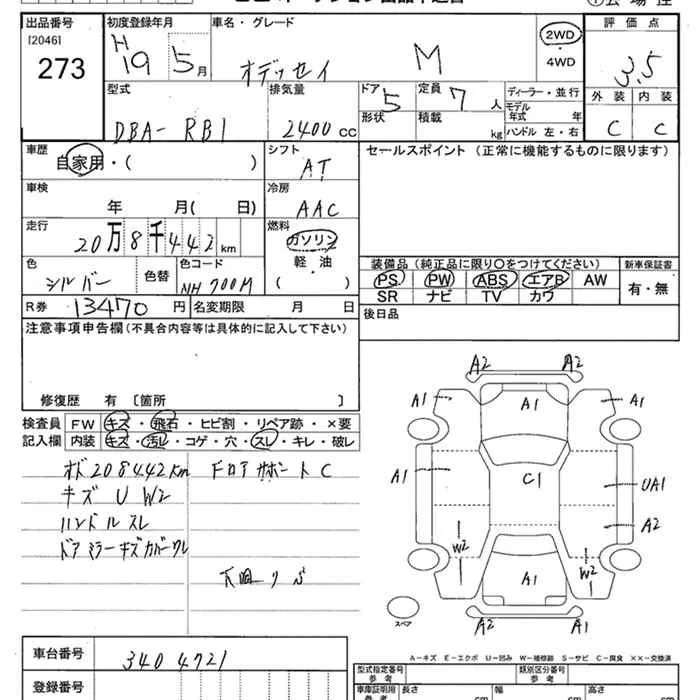 出品番号 初度登録年月 車名・グレード 評価点
[2046] H
273 19 5月 オデッセイ M 2WD ・ 4WD 3.5
型式 排気量 ドア 5 定員 7人 ディーラー・並行 外装 内装
DBA- RB1 2400cc 形状 積載 kg モデル年式 年 C C
ハンドル 左・右
車歴 自家用・( ) シフト AT セールスポイント (正常に機能するものに限ります)
車検 年 月( 日) 冷房 AAC
走行 20万8千442km 燃料 ガソリン 軽油 ( )
色 シルバー 色替 色コード NH700M
装備品 (純正品に限り○をつけてください) 新車保証書
PS PW ABS エアB AW 有・無
SR ナビ TV カワ
R券 13470円 名変期限 月 日 後日品
注意事項申告欄 (不具合内容等は具体的に記入して下さい)
修復歴 有 [箇所 ]
検査員記入欄 FW キズ・飛石・ヒビ割・リペア跡・×要
内装 キズ・汚レ・コゲ・穴・スレ・キレ・破レ
オド208442km ドロアサポートC
キズ U W2
ハンドルスレ
ドアミラーキズカバーワレ
A2 A2
A1 A1 A1
A1 C1 UA1
A2
W2 W2
A1
A2 A1
スペア
A-キズ E-エクボ U-凹み W-補修跡 S-サビ C-腐食 ××-交換済
車台番号 3404721
登録番号
型式指定番号 参考 類別区分番号 参考
車庫証明用 参考 長さ cm 幅 cm 高さ cm